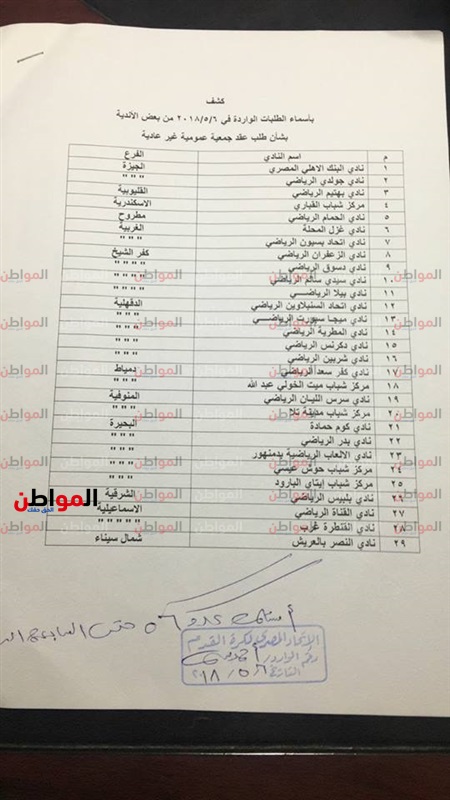 كشف
بأسماء الطلبات الواردة في ٢٠١٨/٥/٦ من بعض الأندية
بشأن طلب عقد جمعية عمومية غير عادية
م اسم النادي الفرع
١ نادي البنك الاهلي المصري الجيزة
٢ نادي جولدي الرياضي " " "
٣ نادي بهتيم الرياضي القليوبية
٤ مركز شباب القباري الاسكندرية
٥ نادي الحمام الرياضي مطروح
٦ نادي غزل المحلة الغربية
٧ نادي اتحاد بسيون الرياضي " " "
٨ نادي الزعفران الرياضي كفر الشيخ
٩ نادي دسوق الرياضي " " " "
١٠ نادي سيدي سالم الرياضي " " " "
١١ نادي بيلا الرياضـــي " " " "
١٢ نادي اتحاد السنبلاوين الرياضي الدقهلية
١٣ نادي ميجا سبورت الرياضـــي " " "
١٤ نادي المطرية الرياضي " " "
١٥ نادي دكرنس الرياضي " " "
١٦ نادي شربين الرياضي " " "
١٧ نادي كفر سعد الرياضي دمياط
١٨ مركز شباب ميت الخولي عبد الله " " "
١٩ نادي سرس الليان الرياضي المنوفية
٢٠ مركز شباب مدينة تلا " " "
٢١ نادي كوم حمادة البحيرة
٢٢ نادي بدر الرياضي " " "
٢٣ نادي الالعاب الرياضية بدمنهور " " "
٢٤ مركز شباب حوش عيسي " " "
٢٥ مركز شباب ايتاي البارود " " "
٢٦ نادي بلبيس الرياضي الشرقية
٢٧ نادي القناة الرياضي الاسماعيلية
٢٨ نادي القنطرة غرب " " " " "
٢٩ نادي النصر بالعريش شمال سيناء
المواطن
الحق معك
الاتحاد المصري لكرة القدم
رقم الوارد
التاريخ